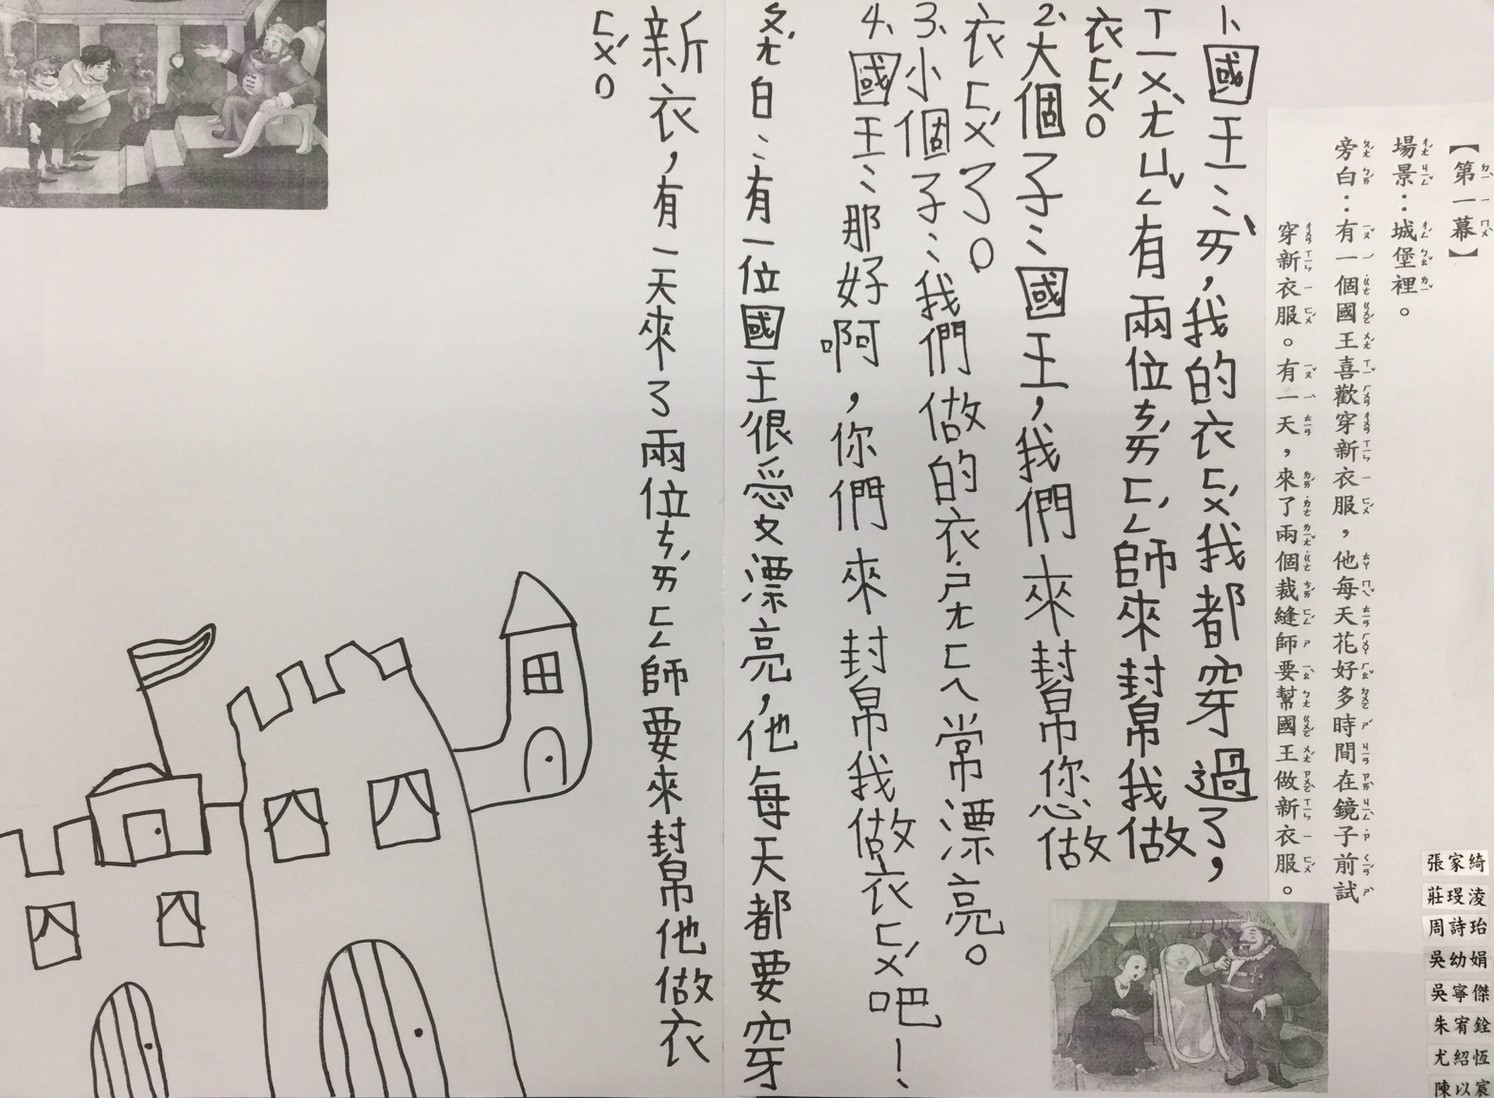 【第一幕】
場景：城堡裡。
旁白：有一個國王喜歡穿新衣服，他每天花好多時間在鏡子前試
穿新衣服。有一天，來了兩個裁縫師要幫國王做新衣服。
1、國王：ㄞˋ，我的衣ㄈㄨˊ我都穿過了，
ㄒㄧㄨˋㄤㄩˇㄥ有兩位ㄘㄞˊㄈㄥˊ師來幫我做
衣ㄈㄨˊ。
2、大個子：國王，我們來幫您做
衣ㄈㄨˊ了。
3、小個子：我們做的衣ㄕㄤㄈㄟ常漂亮。
4、國王：那好啊，你們來幫我做衣ㄈㄨˊ吧！
ㄆㄤˊ白：有一位國王很愛漂亮，他每天都要穿
新衣，有一天來了兩位ㄘㄞˊㄈㄥ師要來幫他做衣
ㄈㄨˊ。
張家綺
莊瑅淩
周詩珆
吳幼娟
吳寧傑
朱宥銓
尤紹恆
陳以宸